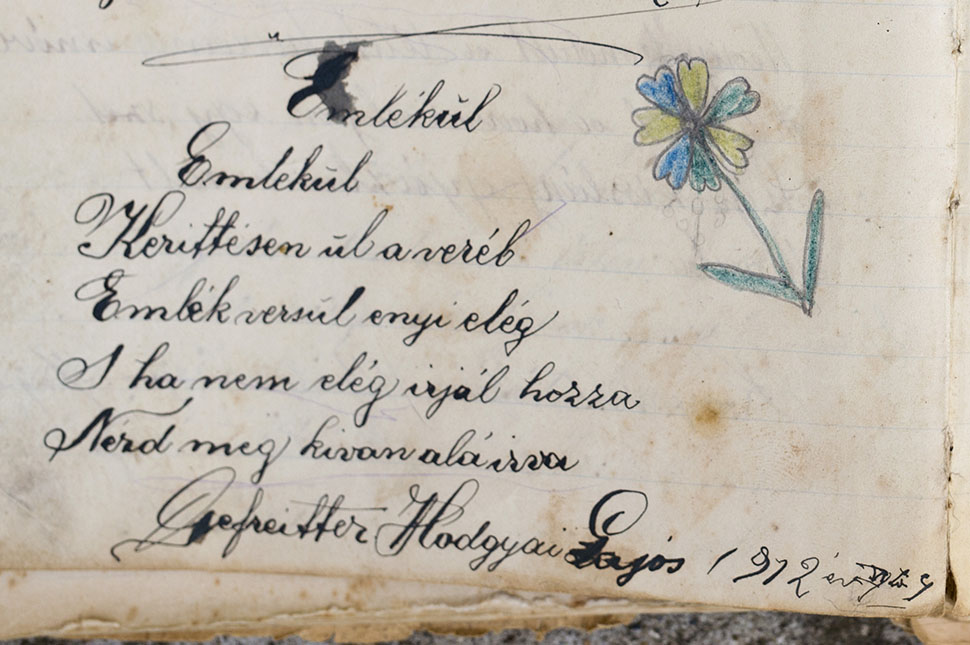 Emlékül
Emlekül
Kerittésen ül a veréb
Emlék versül enyi elég
S ha nem elég irjál hozza
Nézd meg kivan aláirva
Gefreitter Hodgyai Lajos 1912 év